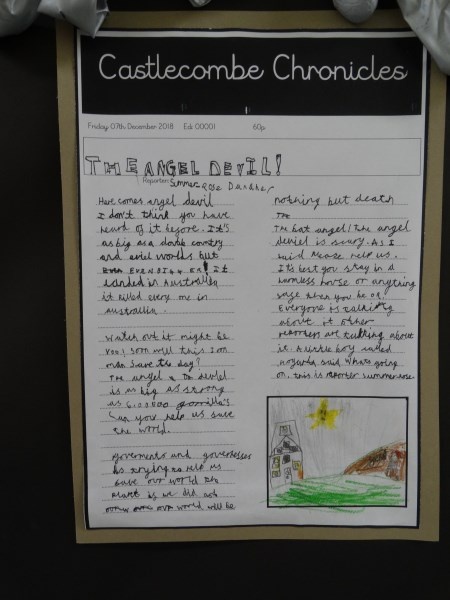 Castlecombe Chronicles
Friday 07th December 2018 Edi 00001 60p
THE ANGEL DEVIL!
Reporter: Summer-Rose
Here comes angel devil
I don't think you have
heard of it before. It's
as big as a
and worlds but
EVEN BIGGER! It
Landed in Australia
it killed every in
australia.
Watch out it might be
You! Soon will this Ion
man save the day?
The angel devlel
is as big as strong
as 6,00000 gorrilla's
Can you help us save
the world.
goverments and governesses
is trying to help us
save our world
if we did not
our world will be
nothing but death
The
The bat angel/The angel
deviel is scary. As I
said Please help us.
It's best you stay in a
harmless house or anything
Everyone is talking
about it other
reporters are talking about
it. A little boy named
said whats going
on. this is reporter summer-rose.